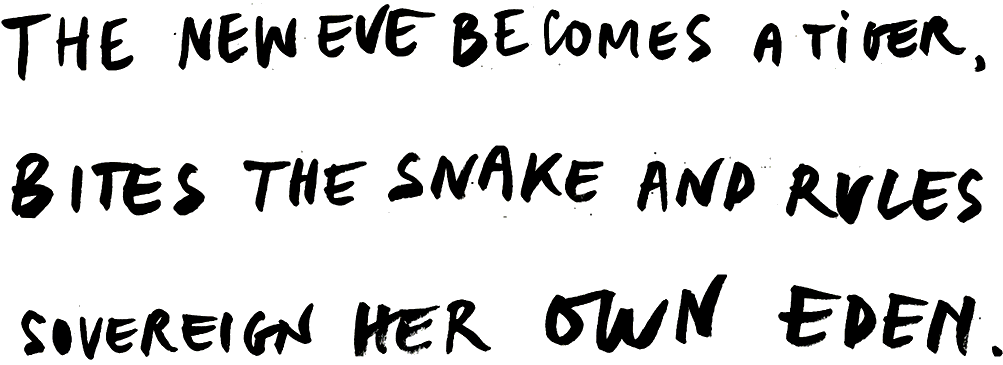 THE NEW EVE BECOMES A TIGER,
BITES THE SNAKE AND RULES
SOVEREIGN HER OWN EDEN.